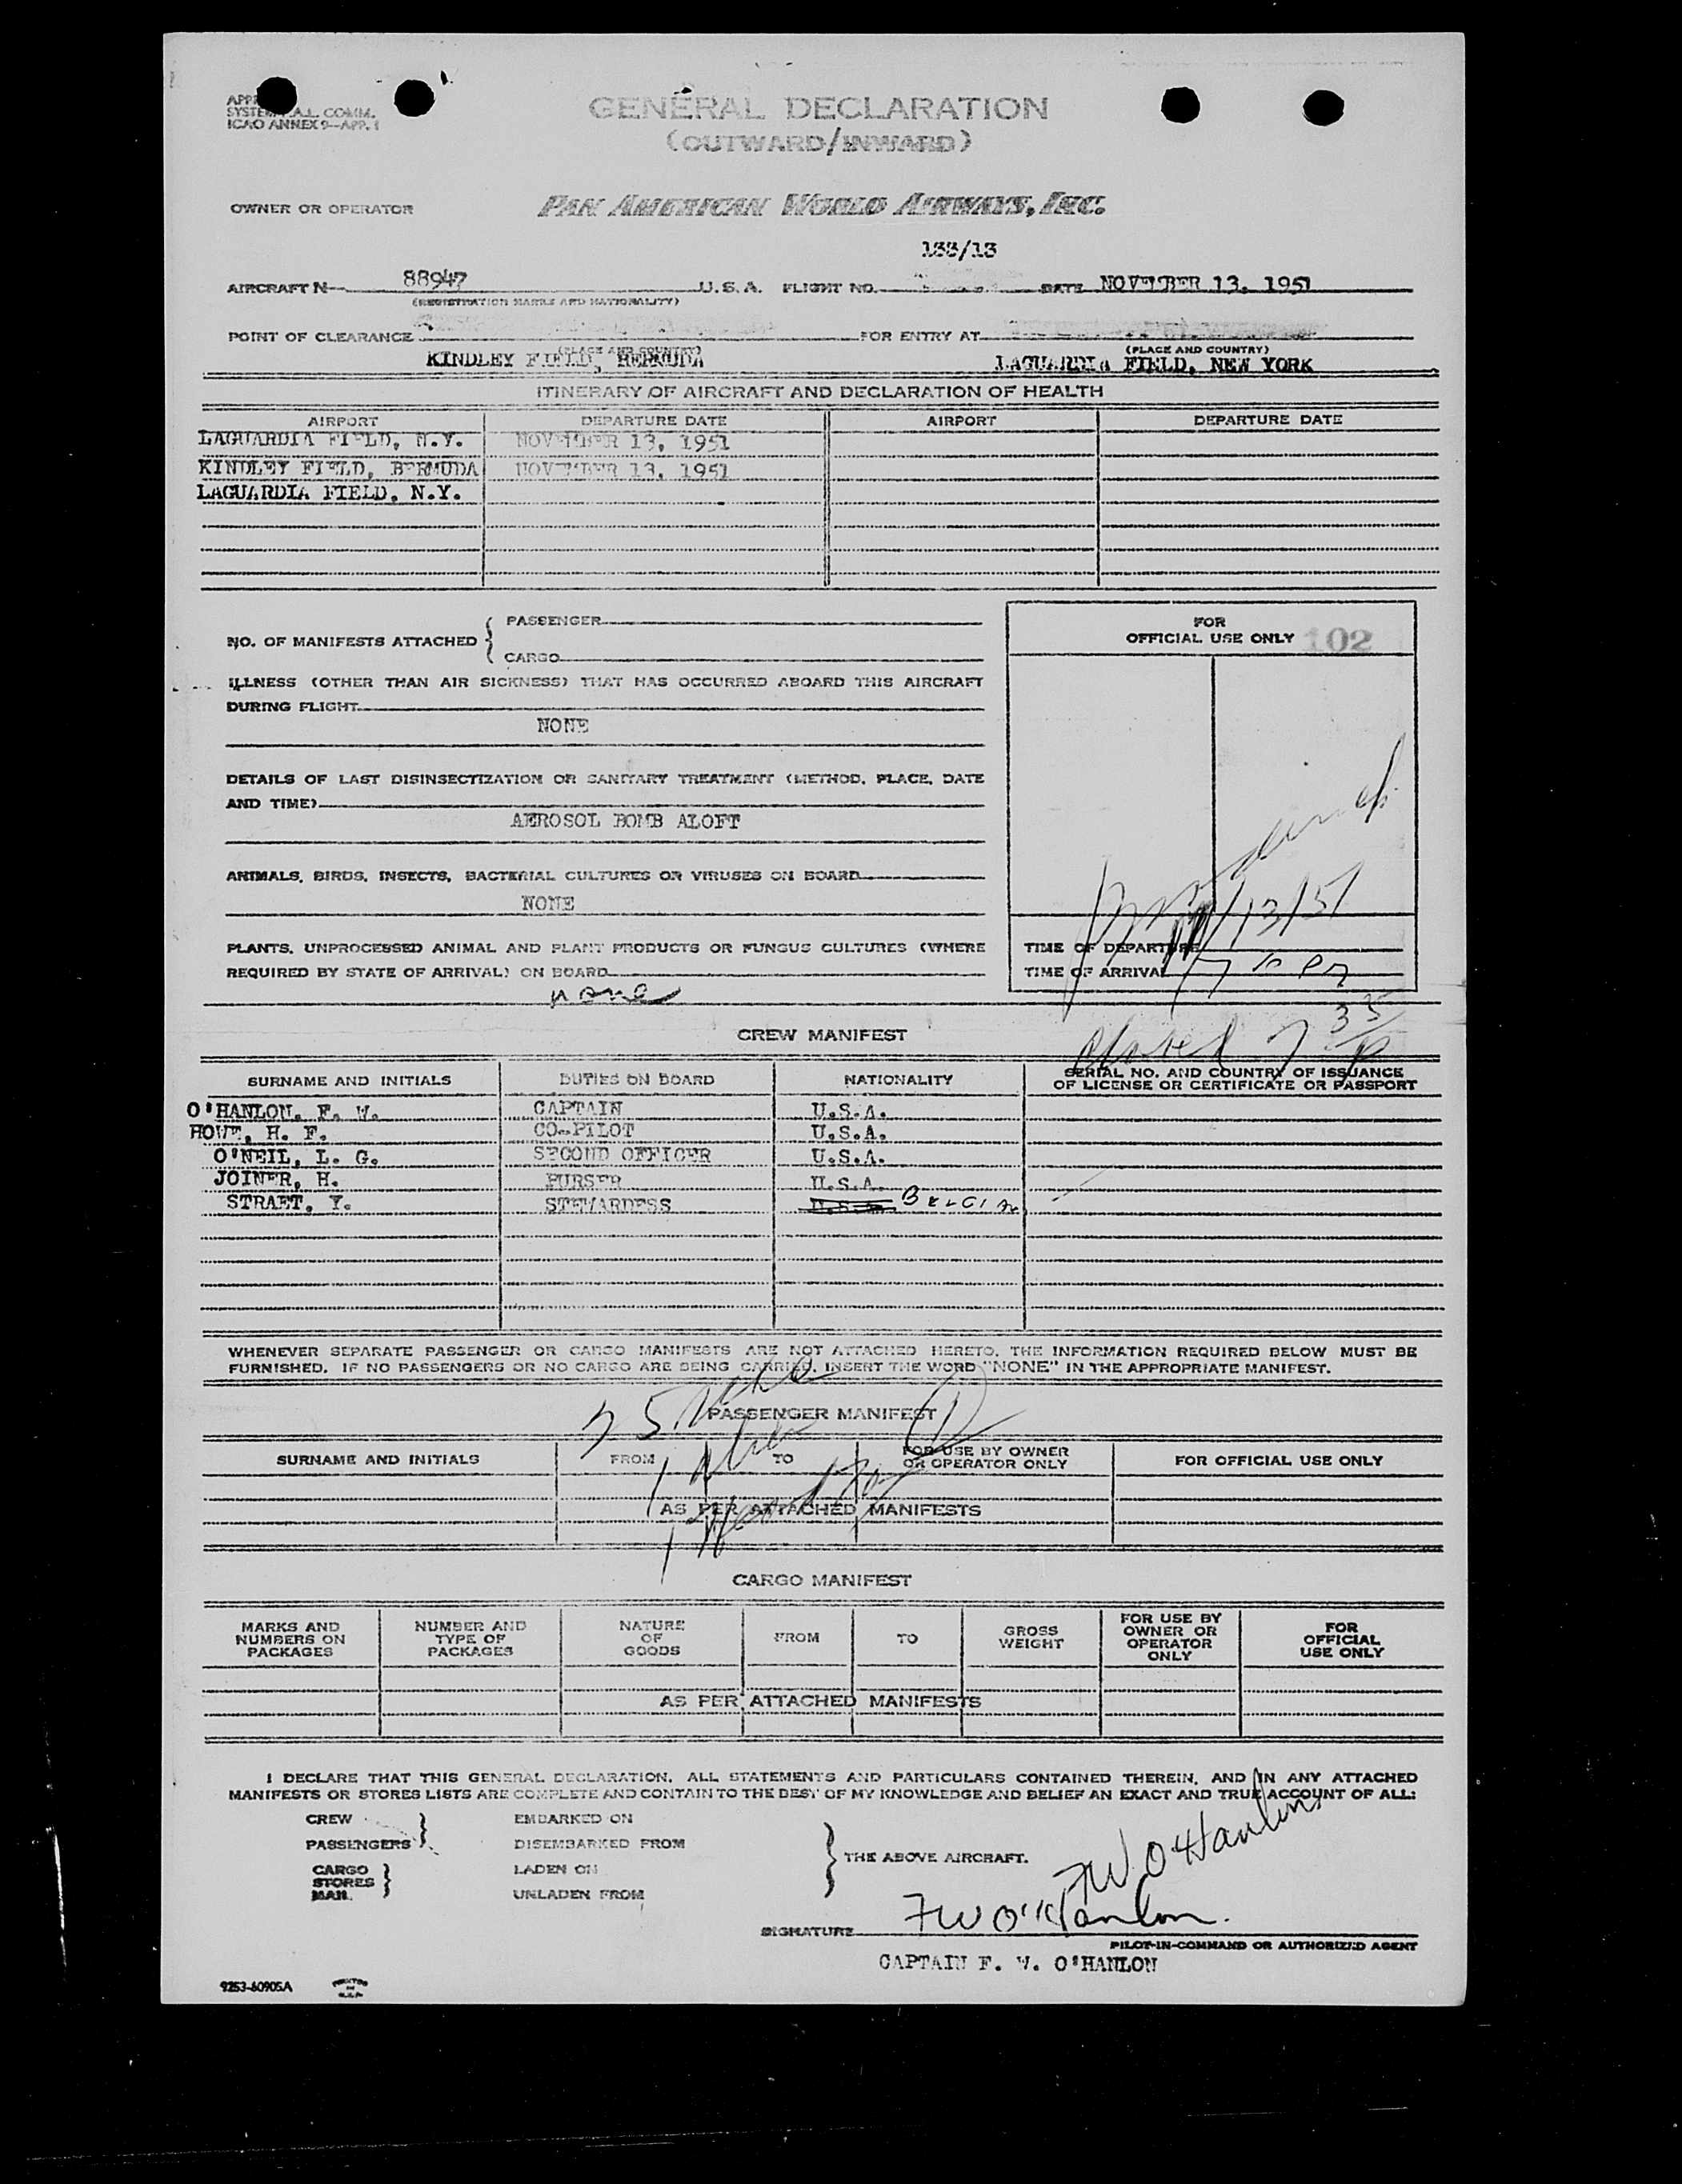 SYSTEM A.L. COMM.
ICAO ANNEX 9—APP. 1
GENERAL DECLARATION
(OUTWARD/INWARD)
OWNER OR OPERATOR PAN AMERICAN WORLD AIRWAYS, INC.
133/13
AIRCRAFT N— 88947 U.S.A. FLIGHT NO. DATE NOVEMBER 13, 1951
(REGISTRATION MARKS AND NATIONALITY)
POINT OF CLEARANCE FOR ENTRY AT
(PLACE AND COUNTRY) (PLACE AND COUNTRY)
KINDLEY FIELD, BERMUDA LAGUARDIA FIELD, NEW YORK
ITINERARY OF AIRCRAFT AND DECLARATION OF HEALTH
AIRPORT DEPARTURE DATE AIRPORT DEPARTURE DATE
LAGUARDIA FIELD, N.Y. NOVEMBER 13, 1951
KINDLEY FIELD, BERMUDA NOVEMBER 13, 1951
LAGUARDIA FIELD, N.Y.
NO. OF MANIFESTS ATTACHED { PASSENGER
CARGO
FOR
OFFICIAL USE ONLY 102
ILLNESS (OTHER THAN AIR SICKNESS) THAT HAS OCCURRED ABOARD THIS AIRCRAFT
DURING FLIGHT
NONE
DETAILS OF LAST DISINSECTIZATION OR SANITARY TREATMENT (METHOD, PLACE, DATE
AND TIME)
AEROSOL BOMB ALOFT
ANIMALS, BIRDS, INSECTS, BACTERIAL CULTURES OR VIRUSES ON BOARD
NONE
11/13/51
PLANTS, UNPROCESSED ANIMAL AND PLANT PRODUCTS OR FUNGUS CULTURES (WHERE
REQUIRED BY STATE OF ARRIVAL) ON BOARD
none
TIME OF DEPARTURE
TIME OF ARRIVAL 7 10 PM
closed 7 35
CREW MANIFEST
SURNAME AND INITIALS DUTIES ON BOARD NATIONALITY SERIAL NO. AND COUNTRY OF ISSUANCE
OF LICENSE OR CERTIFICATE OR PASSPORT
O'HANLON, F. W. CAPTAIN U.S.A.
HOWE, H. F. CO-PILOT U.S.A.
O'NEIL, L. G. SECOND OFFICER U.S.A.
JOINER, H. PURSER U.S.A.
STRAET, Y. STEWARDESS U.S.A. BELGIAN
WHENEVER SEPARATE PASSENGER OR CARGO MANIFESTS ARE NOT ATTACHED HERETO, THE INFORMATION REQUIRED BELOW MUST BE
FURNISHED. IF NO PASSENGERS OR NO CARGO ARE BEING CARRIED, INSERT THE WORD "NONE" IN THE APPROPRIATE MANIFEST.
PASSENGER MANIFEST
SURNAME AND INITIALS FROM TO FOR USE BY OWNER
OR OPERATOR ONLY FOR OFFICIAL USE ONLY
AS PER ATTACHED MANIFESTS
CARGO MANIFEST
MARKS AND
NUMBERS ON
PACKAGES
NUMBER AND
TYPE OF
PACKAGES
NATURE
OF
GOODS
FROM
TO
GROSS
WEIGHT
FOR USE BY
OWNER OR
OPERATOR
ONLY
FOR
OFFICIAL
USE ONLY
AS PER ATTACHED MANIFESTS
I DECLARE THAT THIS GENERAL DECLARATION, ALL STATEMENTS AND PARTICULARS CONTAINED THEREIN, AND IN ANY ATTACHED
MANIFESTS OR STORES LISTS ARE COMPLETE AND CONTAIN TO THE BEST OF MY KNOWLEDGE AND BELIEF AN EXACT AND TRUE ACCOUNT OF ALL:
CREW EMBARKED ON
PASSENGERS DISEMBARKED FROM
THE ABOVE AIRCRAFT.
CARGO LADEN ON
STORES
MAIL UNLADEN FROM
FW O'Hanlon
SIGNATURE FW O'Hanlon.
PILOT-IN-COMMAND OR AUTHORIZED AGENT
CAPTAIN F. W. O'HANLON
9253-60905A PRINTED
IN
U.S.A.